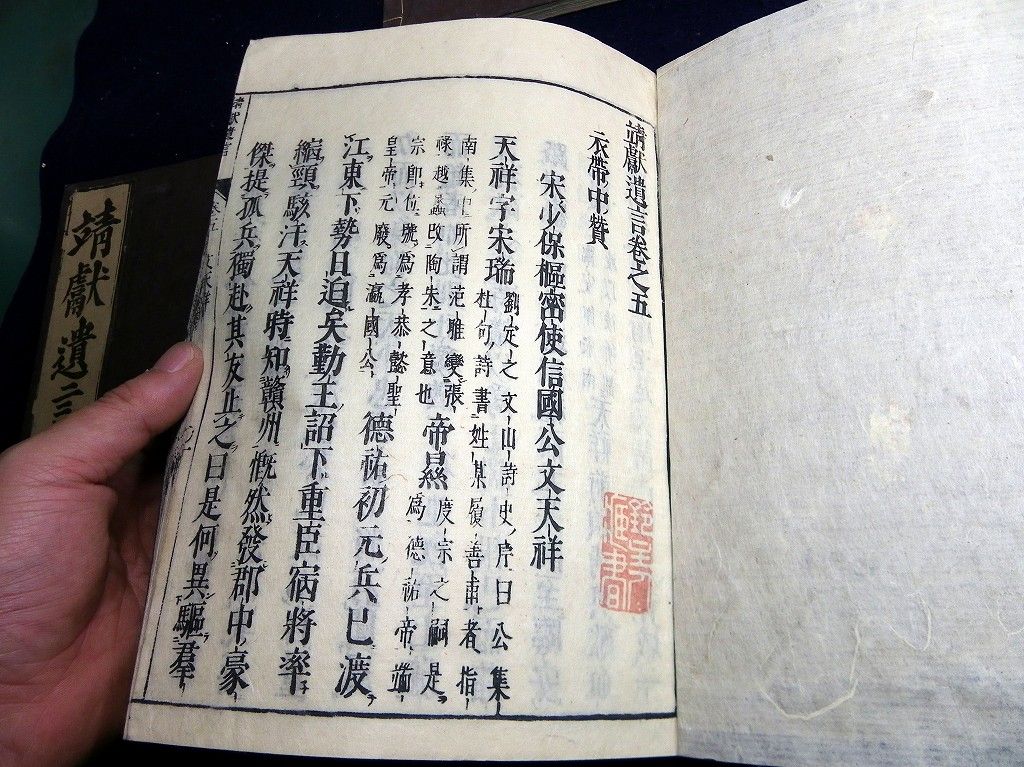 靖獻遺言卷之五
衣帶中贊
宋少保樞密使信國公文天祥
天祥字宋瑞
劉定之文山詩史序曰公集
杜句詩書姓某履善甫者指
南集中所謂范雎變張
祿越蠡改陶朱之意也
帝㬎
度宗之嗣是
爲德祐帝端
宗即位號爲孝恭懿聖
皇帝元廢爲瀛國公
德祐初元兵已渡
江東下勢日迫矣勤王詔下重臣宿將率
縮頸駭汗天祥時知贛州慨然發郡中豪
傑提孤兵獨赴其友止之曰是何異驅羣
靖獻遺